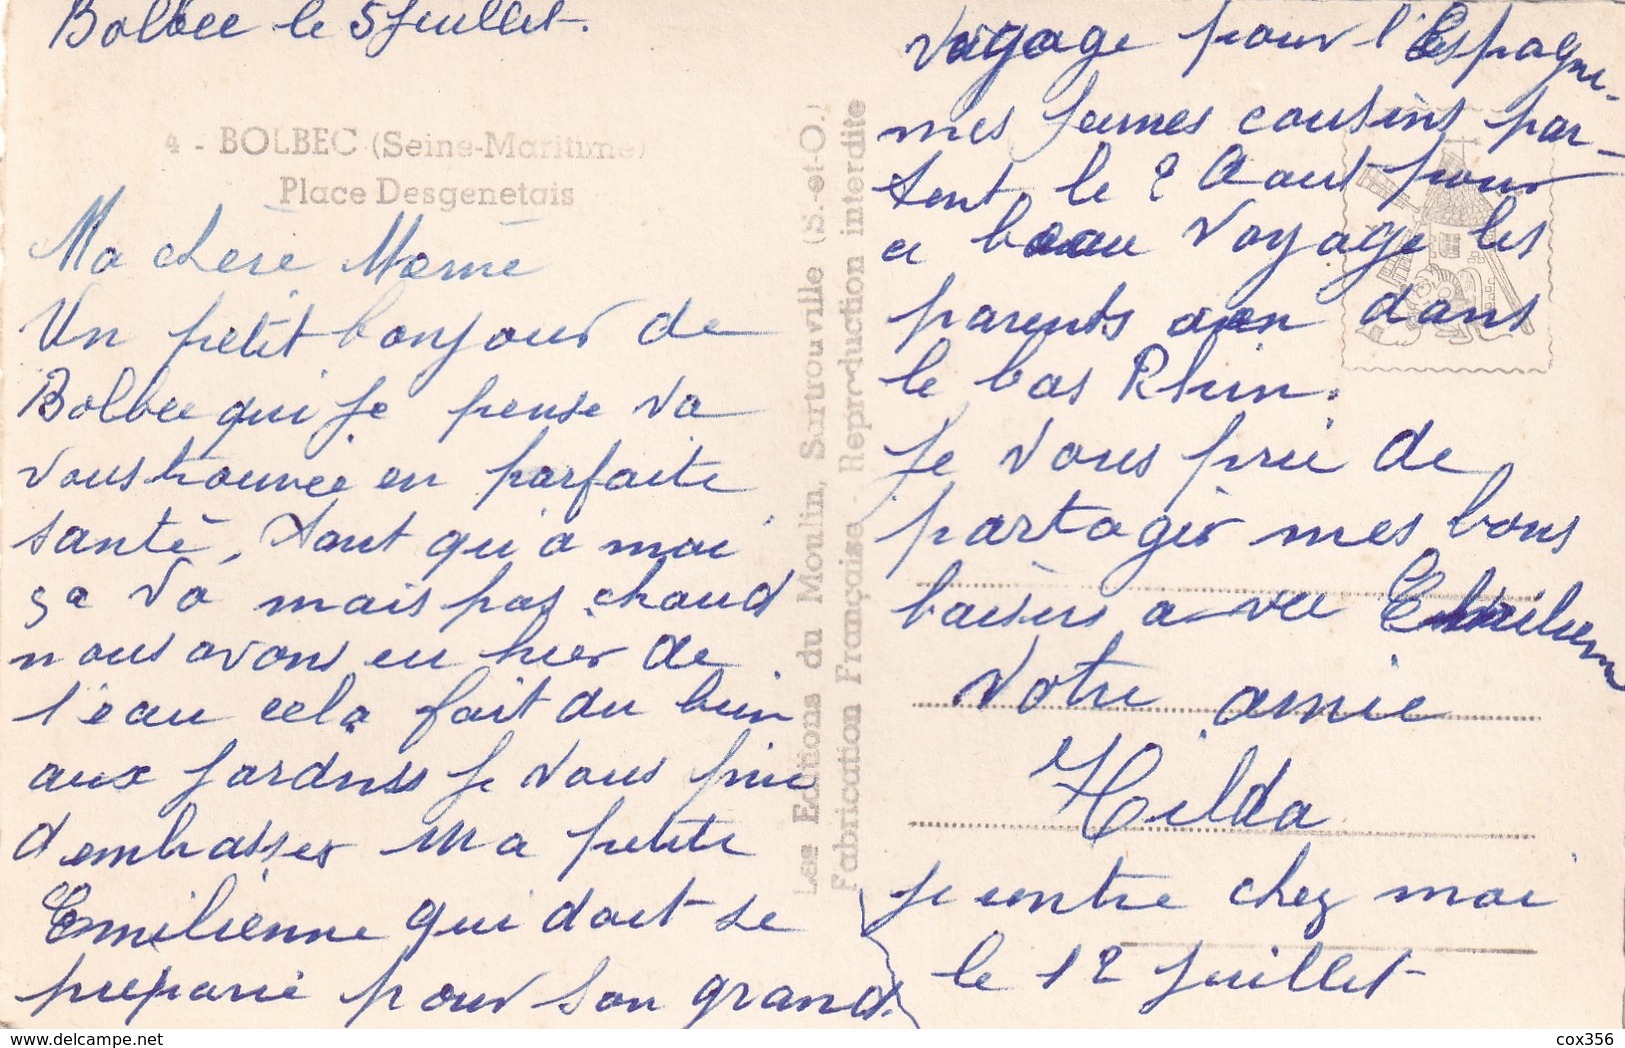 Bolbec le 5 Juillet.
4 - BOLBEC (Seine-Maritime)
Place Desgenetais
Ma chère Mémé
Un petit bonjour de
Bolbec qui je pense va
vous trouvée en parfaite
santé, tant qu'a moi
ça va mais pas chaud
nous avons eu hier de
l'eau cela fait du bien
aux jardins je vous prie
d'embrasser Ma petite
Emilienne qui doit se
préparé pour son grand
voyage pour l'Espagne.
mes jeunes cousins par-
tent le 2 Aout pour
ce beau voyage les
parents dans
le bas Rhin.
je vous prie de
partager mes bons
baisers avec Emilienne
Votre amie
Hilda
je rentre chez moi
le 12 Juillet
Les Editions du Moulin, Sartrouville (S.-et-O.)
Fabrication Française - Reproduction interdite
cox356